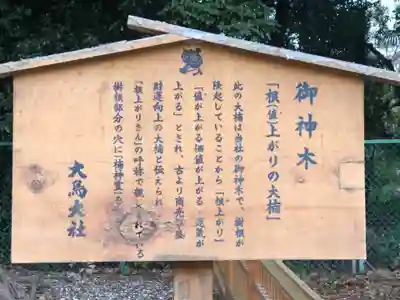 御神木
「根(値)上がりの大楠」
此の大楠は当社の御神木で、樹根が
隆起していることから「根上がり」
「値が上がる価値が上がる 運気が
上がる」とされ、古より商売
財運向上の大楠と伝えられ
「根上がりさん」の呼称で れている
樹根部分の穴に「楠神霊」る
大鳥大社